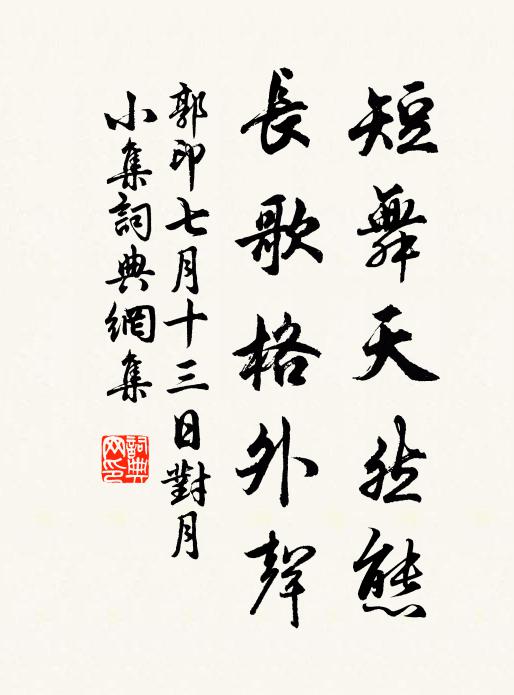 短舞天然態
長歌格外聲
郭印七月十三日對月
小集詞典網集
詞典網印